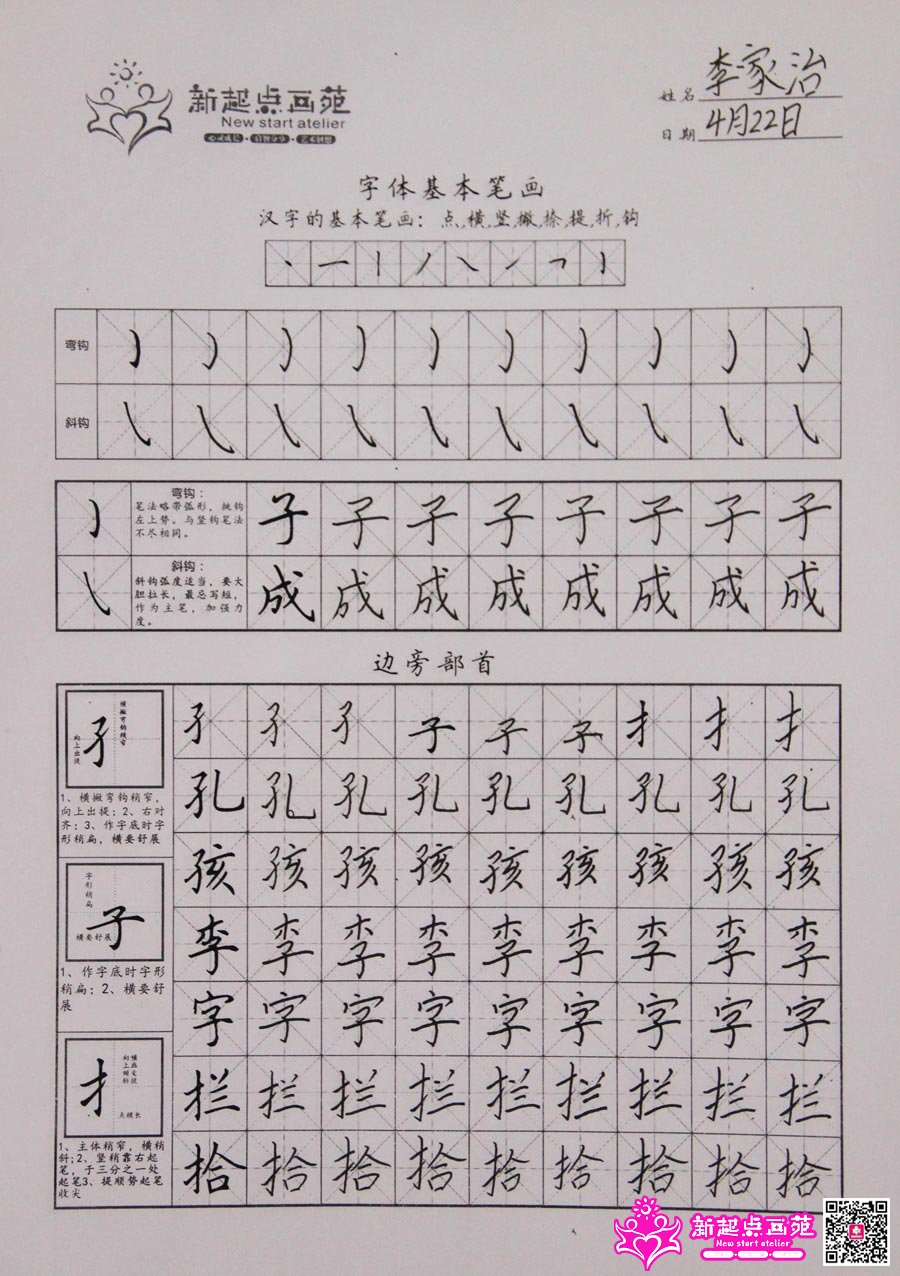 新起点画苑
New start atelier
姓名 李家治
日期 4月22日
字体基本笔画
汉字的基本笔画：点,横,竖,撇,捺,提,折,钩
弯钩
斜钩
弯钩：
笔法略带弧形，挑钩
左上势。与竖钩笔法
不尽相同。
子子子子子子子子
斜钩：
斜钩弧度适当，要大
胆拉长，最忌写短，
作为主笔，加强力
度。
成成成成成成成成
边旁部首
横撇弯钩稍窄
向上出提
孑
1、横撇弯钩稍窄，
向上出提；2、右对
齐；3、作字底时字
形稍扁，横要舒展
字形稍扁
横要舒展
子
1、作字底时字形
稍扁；2、横要舒
展
点稍长
扌
1、主体稍窄，横稍
斜;2、竖稍靠右起
笔，于三分之一处
起笔3、提顺势起笔
收尖
孑孑孑子子子扌扌扌
孔孔孔孔孔孔孔孔孔
孩孩孩孩孩孩孩孩孩
李李李李李李李李李
字字字字字字字字字
拦拦拦拦拦拦拦拦拦
拾拾拾拾拾拾拾拾拾
新起点画苑
New start atelier